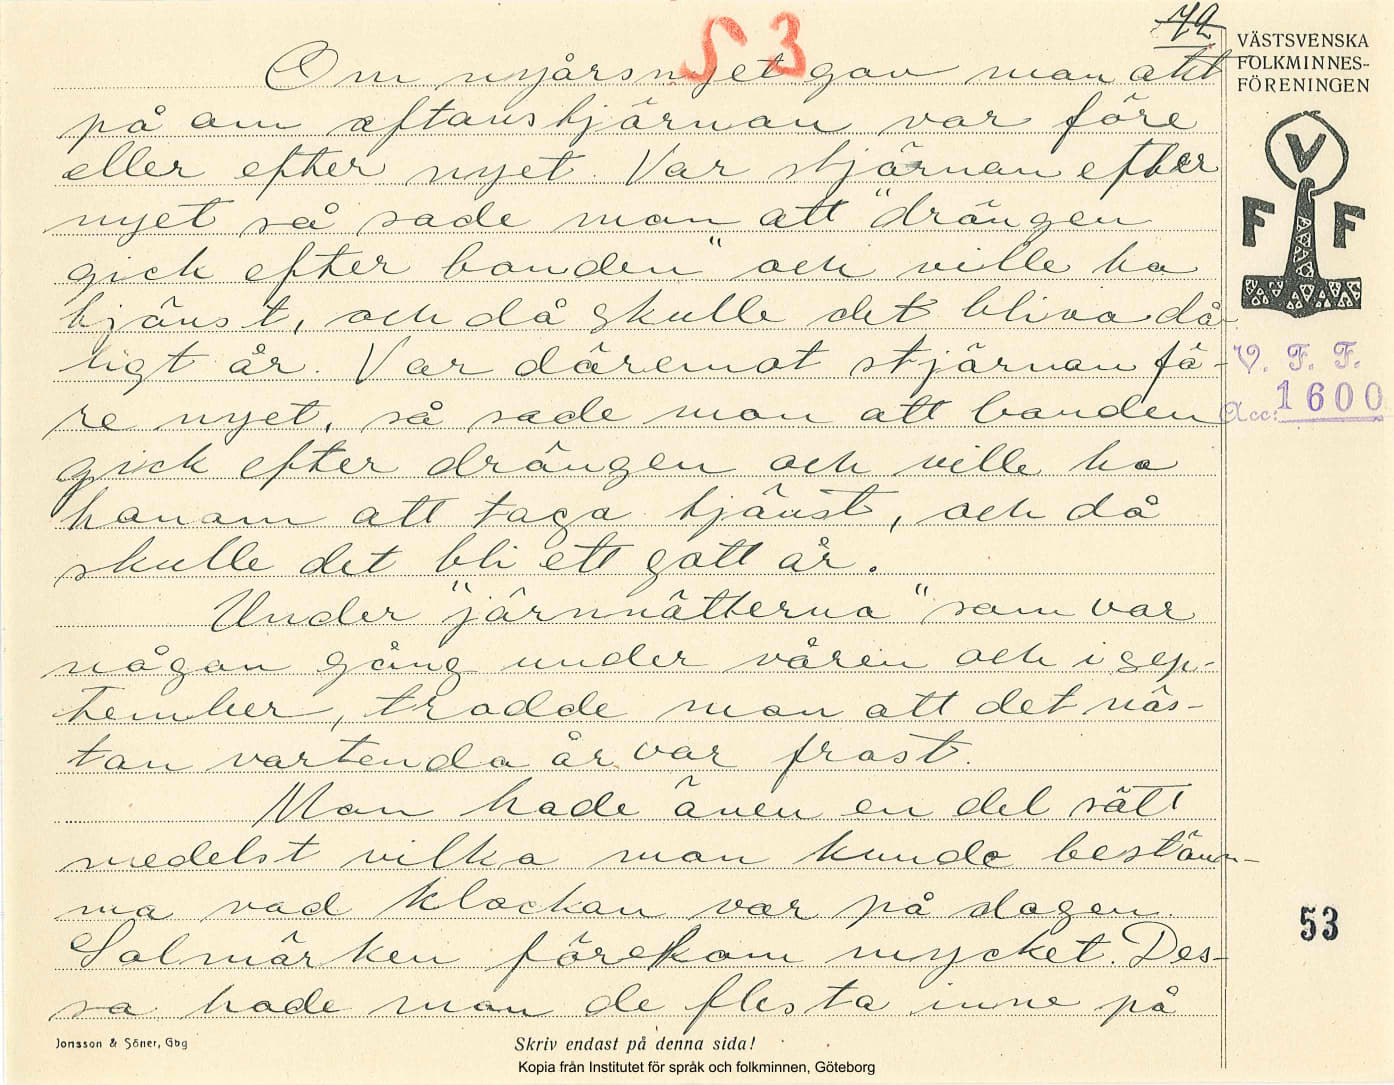 53
42
VÄSTSVENSKA
FOLKMINNES-
FÖRENINGEN
V
F F
V. F. F.
Acc: 1600
Om nyårsnyet gav man akt
på om aftonstjärnan var före
eller efter nyet. Var stjärnan efter
nyet så sade man att "drängen
gick efter bonden" och ville ha
tjänst, och då skulle det bliva då-
ligt år. Var däremot stjärnan fö-
re nyet, så sade man att bonden
gick efter drängen och ville ha
honom att taga tjänst, och då
skulle det bli ett gott år.
Under "järnnätterna" som var
någon gång under våren och i sep-
tember, trodde man att det näs-
tan vartenda år var frost.
Man hade även en del sätt
medelst vilka man kunde bestäm-
ma vad klockan var på dagen.
Solmärken förekom mycket. Des-
sa hade man de flesta inne på
53
Jonsson & Söner, Gbg
Skriv endast på denna sida!
Kopia från Institutet för språk och folkminnen, Göteborg